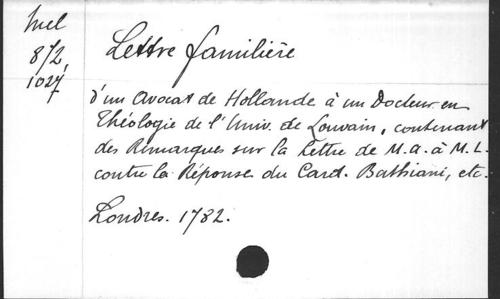 Mel
872,
1027
Lettre familière
d'un Avocat de Hollande à un Docteur en
Théologie de l'Univ. de Louvain, contenant
des Remarques sur la Lettre de M.A. à M.L.
contre la Réponse du Card. Bathiani, etc.
Londres. 1782.